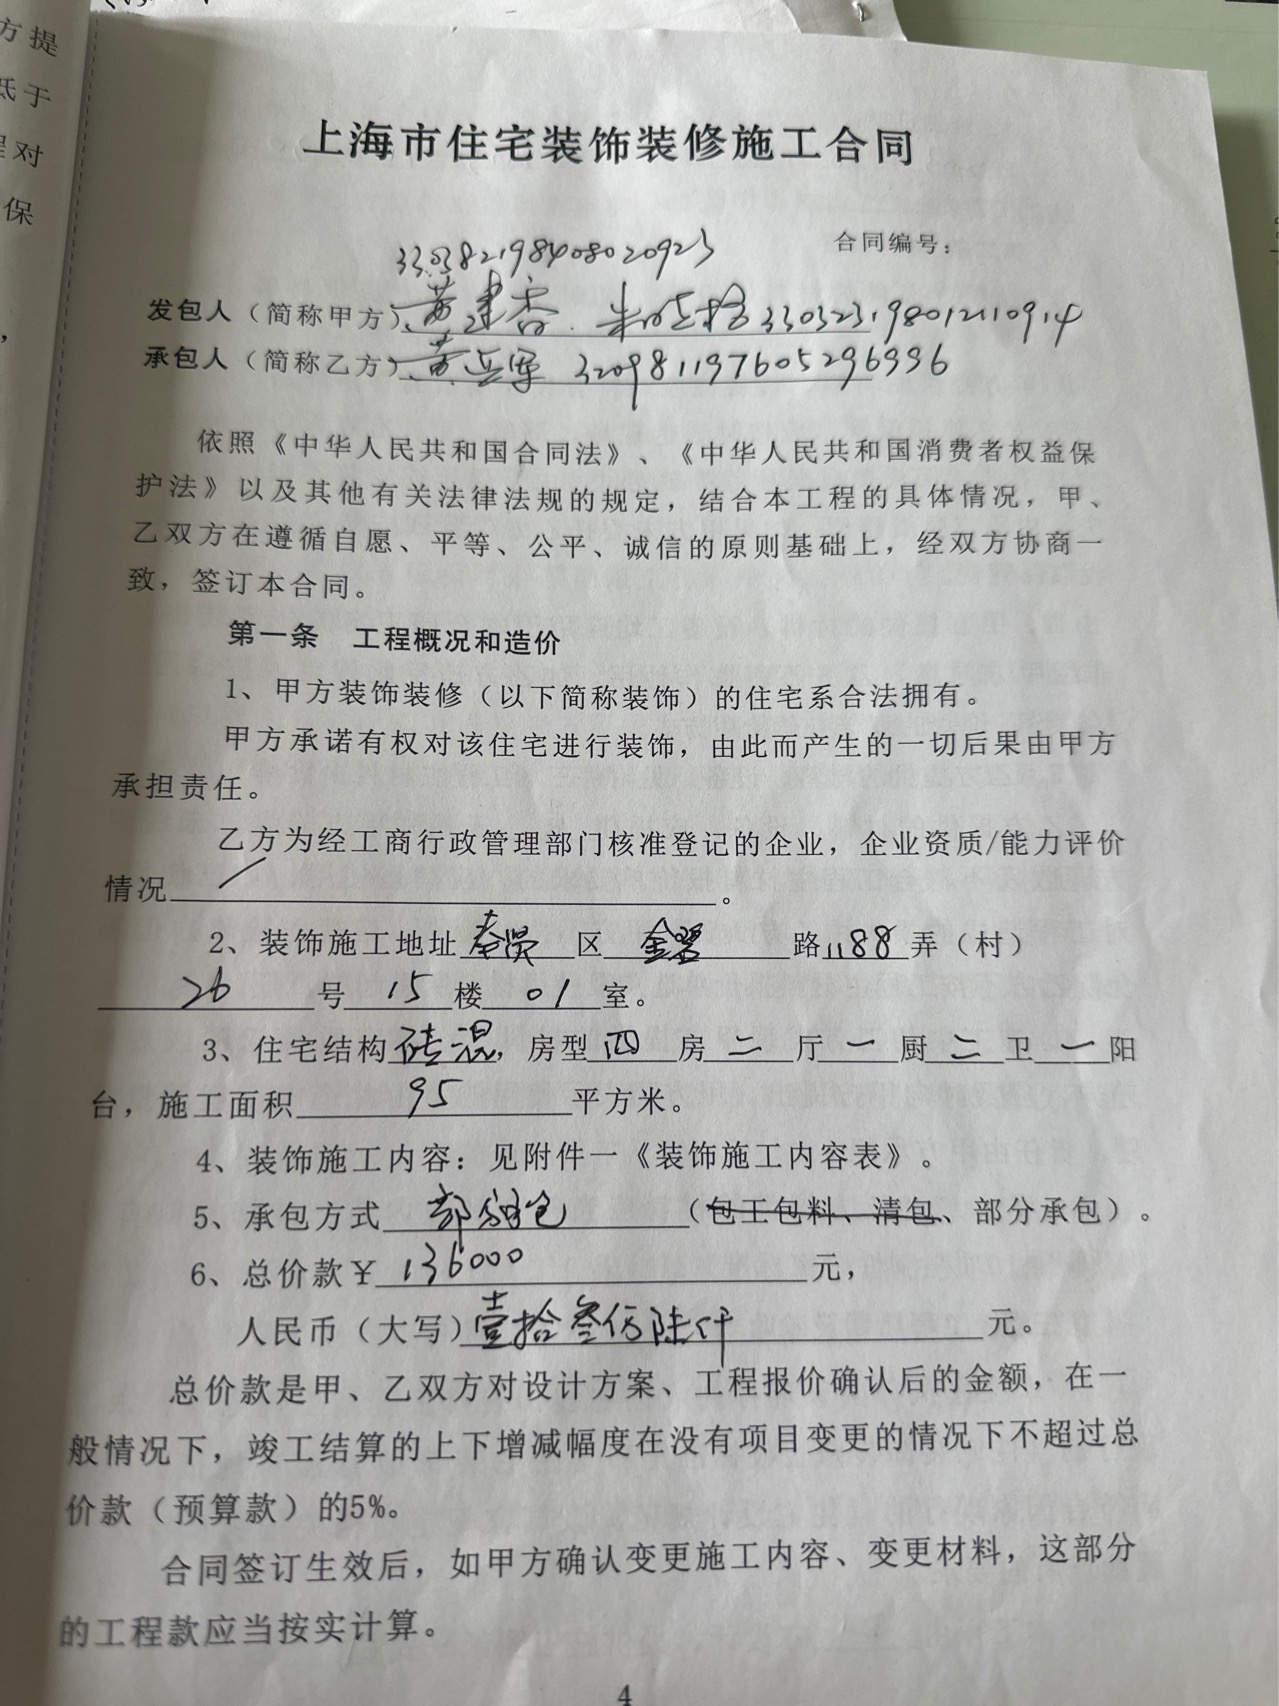 方提
低于
程对
保
上海市住宅装饰装修施工合同
合同编号：
330382198408020923
发包人（简称甲方）黄建香 朱晓格 330323198012110914
承包人（简称乙方）黄兵军 320981197605296996
依照《中华人民共和国合同法》、《中华人民共和国消费者权益保
护法》以及其他有关法律法规的规定，结合本工程的具体情况，甲、
乙双方在遵循自愿、平等、公平、诚信的原则基础上，经双方协商一
致，签订本合同。
第一条 工程概况和造价
1、甲方装饰装修（以下简称装饰）的住宅系合法拥有。
甲方承诺有权对该住宅进行装饰，由此而产生的一切后果由甲方
承担责任。
乙方为经工商行政管理部门核准登记的企业，企业资质/能力评价
情况 / 。
2、装饰施工地址奉贤区金碧路1188弄（村）
26号15楼01室。
3、住宅结构砖混，房型四房二厅一厨二卫一阳
台，施工面积95平方米。
4、装饰施工内容：见附件一《装饰施工内容表》。
5、承包方式部分承包（包工包料、清包、部分承包）。
6、总价款￥136000元，
人民币（大写）壹拾叁伍陆仟元。
总价款是甲、乙双方对设计方案、工程报价确认后的金额，在一
般情况下，竣工结算的上下增减幅度在没有项目变更的情况下不超过总
价款（预算款）的5%。
合同签订生效后，如甲方确认变更施工内容、变更材料，这部分
的工程款应当按实计算。
4